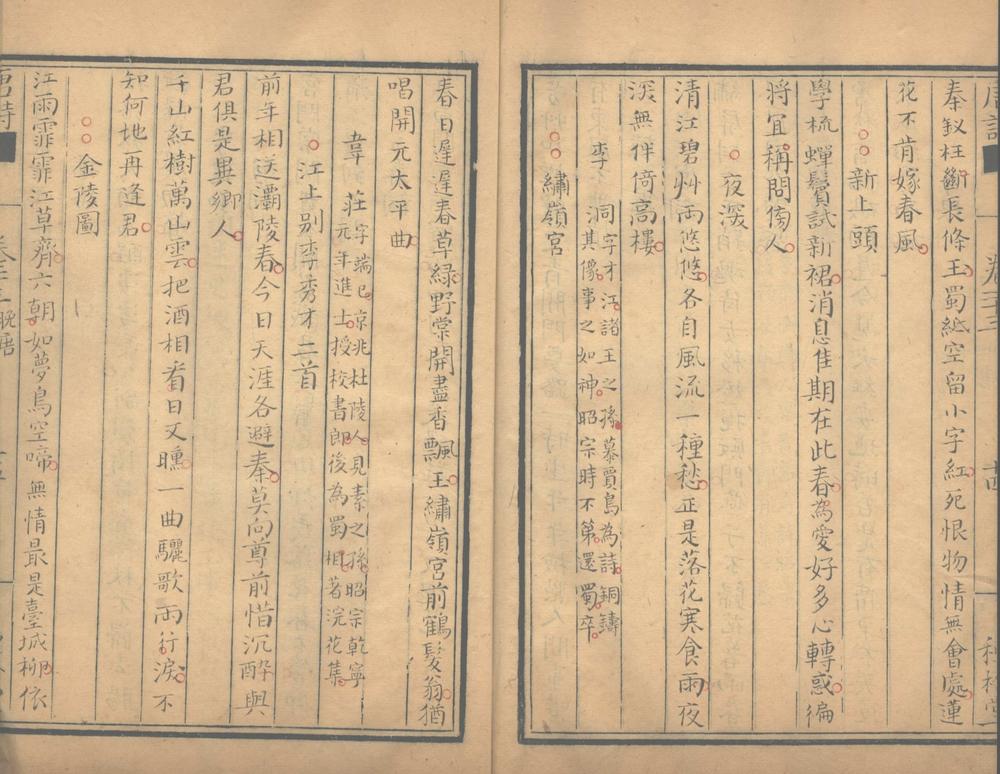 奉釵枉斷長條玉蜀紙空留小字紅死恨物情無會處蓮
花不肯嫁春風
新上頭
學梳蟬鬢試新裙消息佳期在此春為愛好多心轉惑徧
將宜稱問傍人
夜深
清江碧艸兩悠悠各自風流一種愁正是落花寒食雨夜
深無伴倚高樓
李洞字才江諸王之孫慕賈島為詩銅鑄
其像事之如神昭宗時不第還蜀卒
繡嶺宮
春日遲遲春草綠野棠開盡香飄玉繡嶺宮前鶴髮翁猶
唱開元太平曲
韋莊字端己京兆杜陵人見素之孫昭宗乾寧
元年進士授校書郎後為蜀相著浣花集
江上別李秀才二首
前年相送灞陵春今日天涯各避秦莫向尊前惜沉醉與
君俱是異鄉人
千山紅樹萬山雲把酒相看日又曛一曲驪歌兩行淚不
知何地再逢君
金陵圖
江雨霏霏江草齊六朝如夢鳥空啼無情最是臺城柳依
唐詩 卷三 晚唐